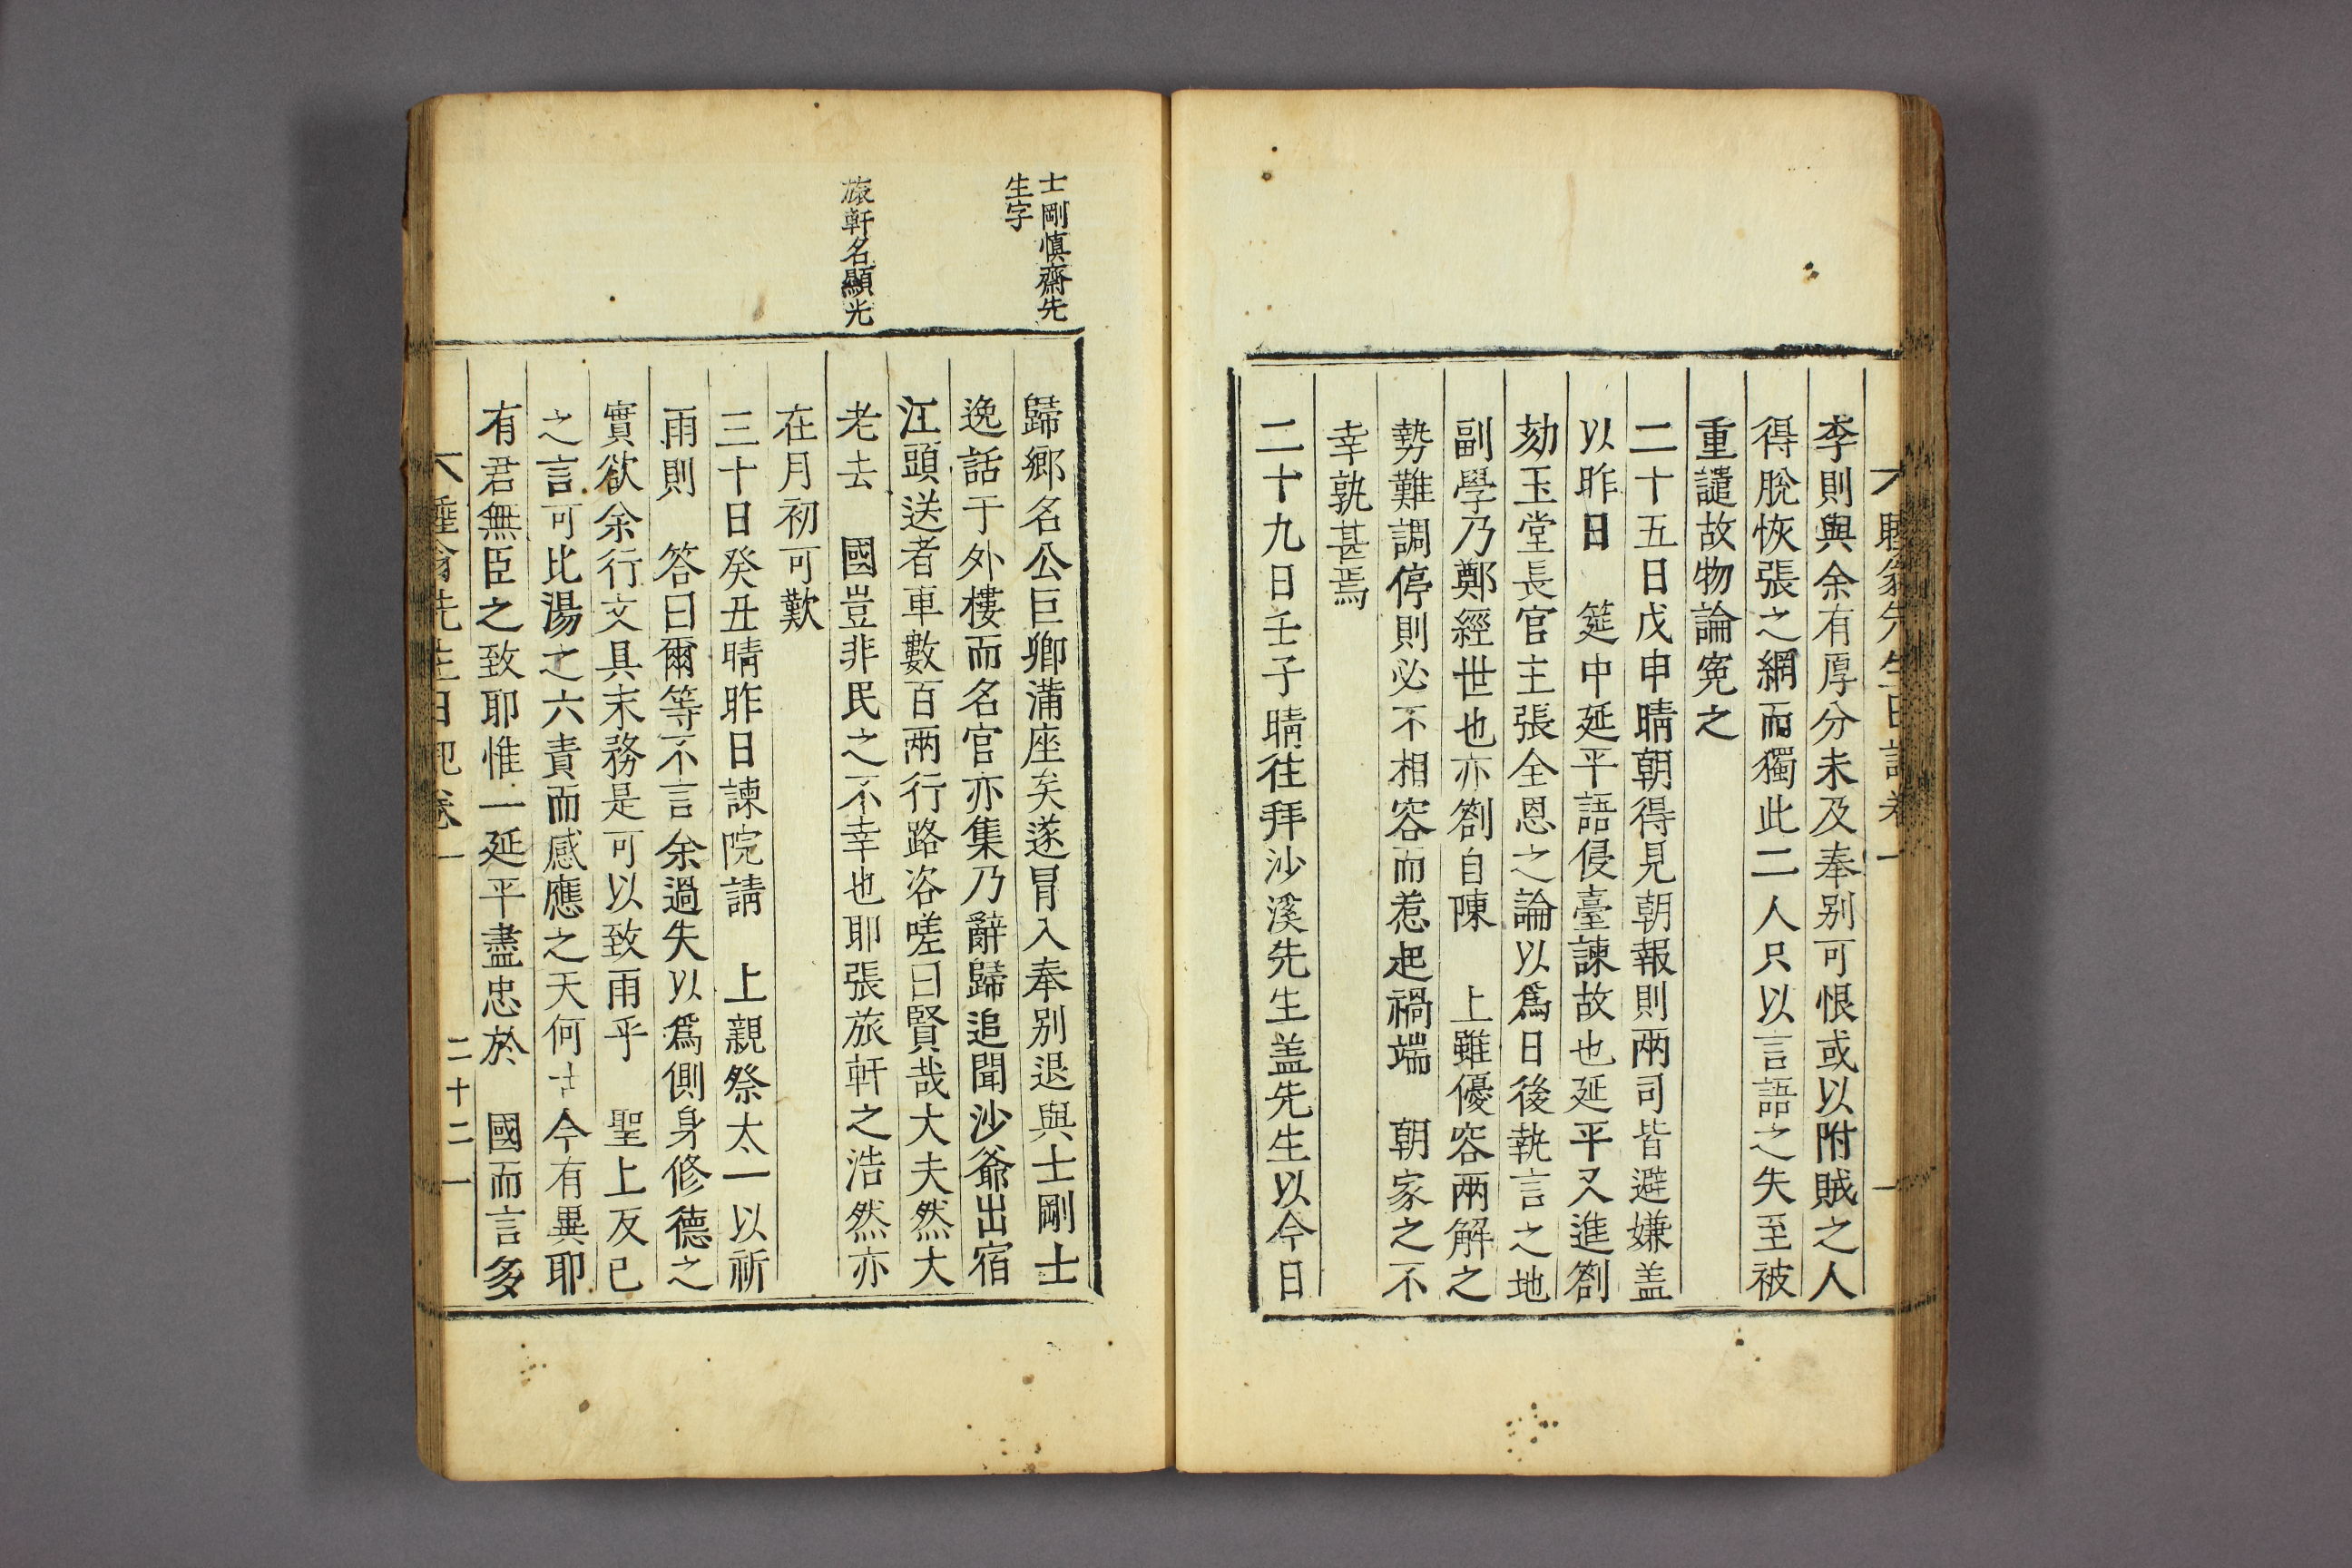 先生日記卷一
李則與余有厚分未及奉別可恨或以附賊之人
得脫恢張之網而獨此二人只以言語之失至被
重譴故物論寃之
二十五日戊申晴朝得見朝報則兩司皆避嫌盖
以昨日 筵中延平語侵臺諫故也延平又進劄
劾玉堂長官主張全恩之論以爲日後執言之地
副學乃鄭經世也亦劄自陳 上雖優容兩解之
勢難調停則必不相容而惹起禍端 朝家之不
幸孰甚焉
二十九日壬子晴往拜沙溪先生盖先生以今日
士剛愼齋先
生字
旅軒名顯光
歸鄕名公巨卿滿座矣遂冒入奉別退與士剛士
逸話于外樓而名官亦集乃辭歸追聞沙爺出宿
江頭送者車數百兩行路咨嗟曰賢哉大夫然大
老去 國豈非民之不幸也耶張旅軒之浩然亦
在月初可歎
三十日癸丑晴昨日諫院請 上親祭太一以祈
雨則 答曰爾等不言余過失以爲側身修德之
實欲余行文具末務是可以致雨乎 聖上反己
之言可比湯之六責而感應之天何古今有異耶
有君無臣之致耶惟一延平盡忠於 國而言多
睡翁先生日記卷一 二十二